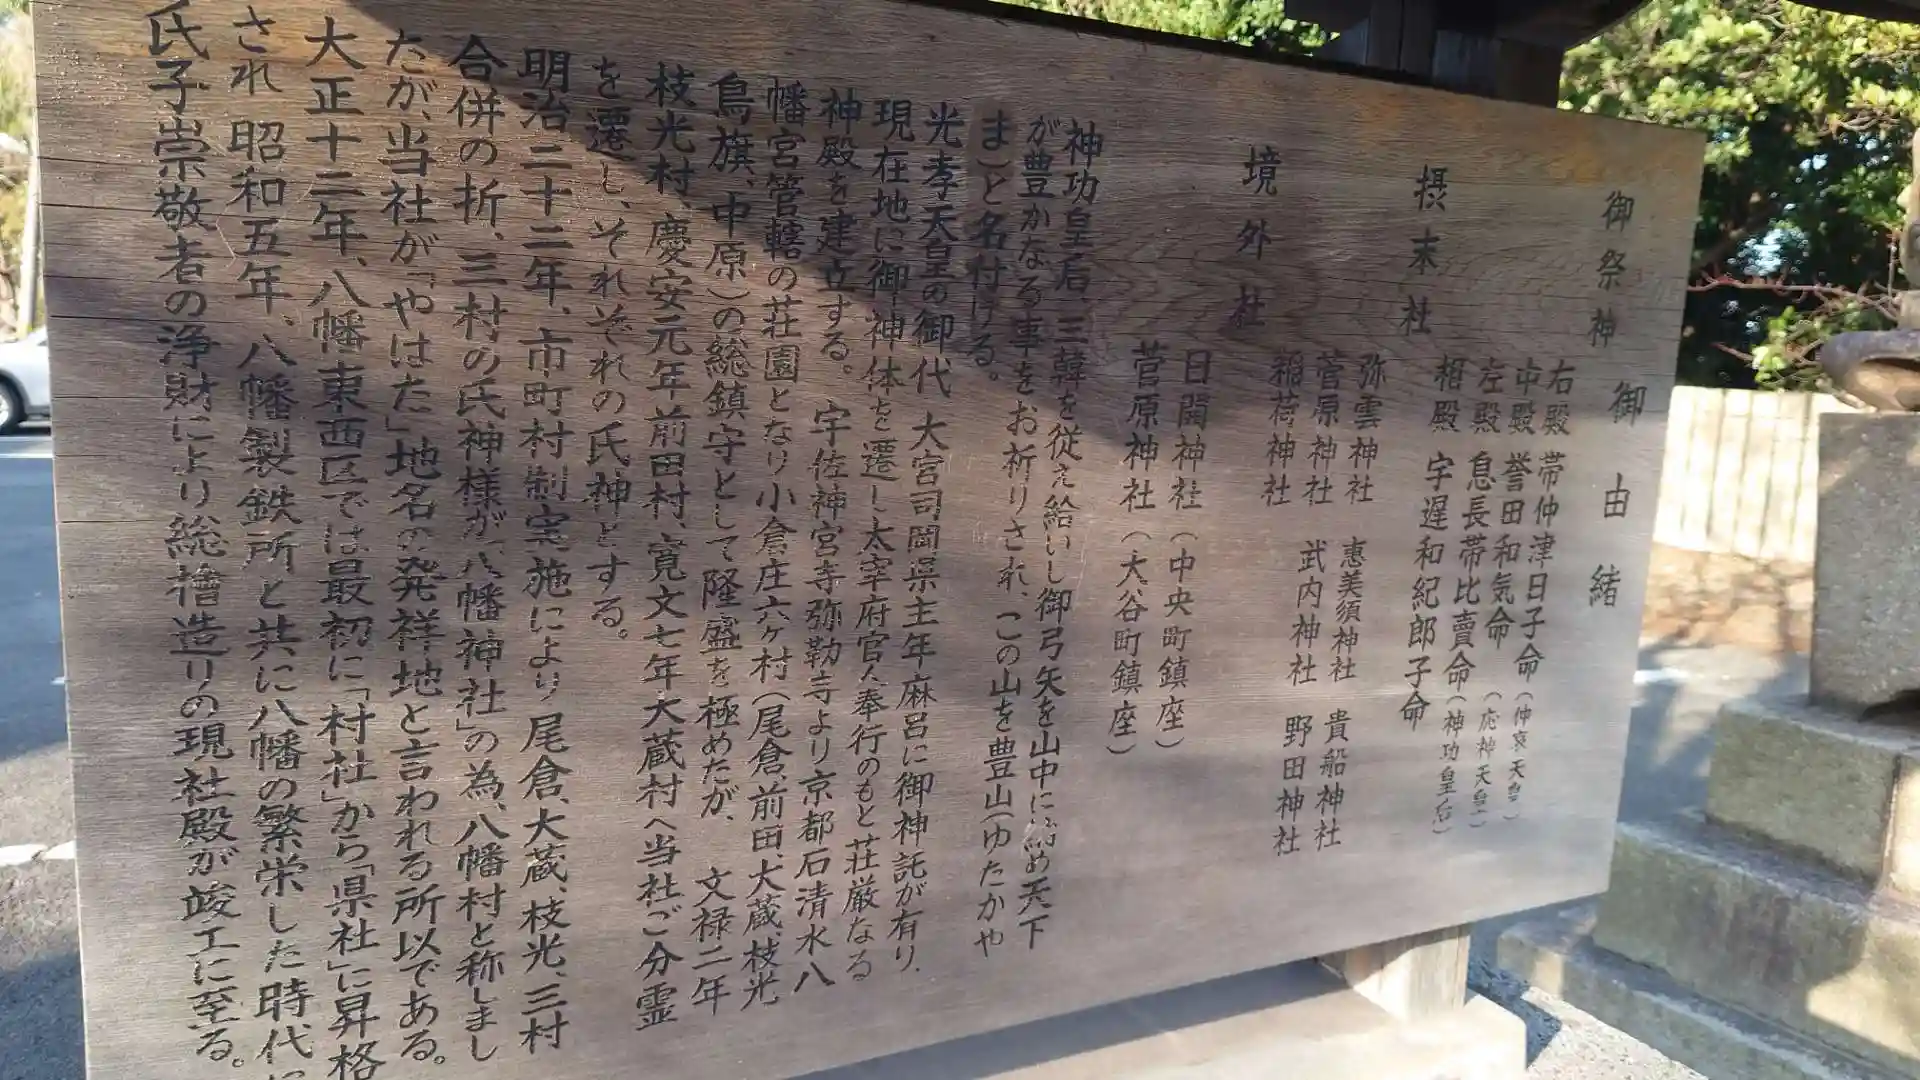 御由緒
御祭神
右殿 帯仲津日子命（仲哀天皇）
中殿 誉田和気命（応神天皇）
左殿 息長帯比賣命（神功皇后）
相殿 宇遅和紀郎子命
摂末社
弥雲神社 恵美須神社 貴船神社
菅原神社 武内神社 野田神社
稲荷神社
境外社
日関神社（中央町鎮座）
菅原神社（大谷町鎮座）
神功皇后、三韓を従え給いし御弓矢を山中に納め天下
が豊かなる事をお祈りされ、この山を豊山（ゆたかや
ま）と名付ける。
光孝天皇の御代 大宮司岡県主年麻呂に御神託が有り、
現在地に御神体を遷し太宰府官人奉行のもと荘厳なる
神殿を建立する。 宇佐神宮寺弥勒寺より京都石清水八
幡宮管轄の荘園となり小倉庄六ヶ村（尾倉、前田、大蔵、枝光
鳥旗、中原）の総鎮守として隆盛を極めたが、 文禄二年
枝光村、慶安元年前田村、寛文七年大蔵村へ当社ご分霊
を遷し、それぞれの氏神とする。
明治二十二年、市町村制実施により尾倉、大蔵、枝光、三村
合併の折、三村の氏神様が「八幡神社」の為、八幡村と称しまし
たが、当社が「やはた」地名の発祥地と言われる所以である。
大正十二年、八幡東西区では最初に「村社」から「県社」に昇格
され 昭和五年、八幡製鉄所と共に八幡の繁栄した時代に
氏子崇敬者の浄財により総檜造りの現社殿が竣工に至る。